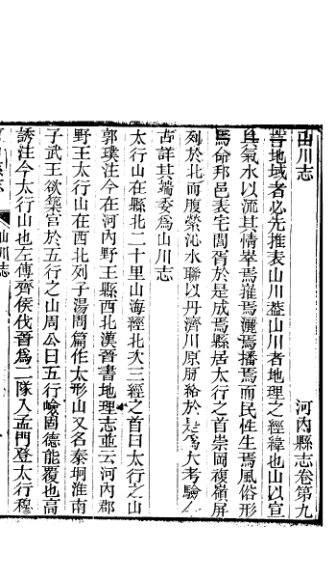 河內縣志卷第九
山川志
言地域者必先推表山川葢山川者地理之經緯也山以宣
其氣水以流其情峯焉摧焉瀰焉播焉而民性生焉風俗形
焉命邦邑表宅閭胥於是成焉縣居太行之首崇岡複嶺屏
列於北而腹縈沁水聯以丹濟川原脈絡於是爲大考驗
古詳其端委爲山川志
太行山在縣北二十里山海經北次三經之首曰太行之山
郭璞注今在河內野王縣西北漢晉書地理志並云河內郡
野王太行山在西北列子湯問篇作太形山又名秦坰淮南
子武王欲築宫於五行之山周公曰五行險固德能覆也高
誘注今太行山也左傳齊侯伐晉爲二隊入孟門登太行穆
山川志